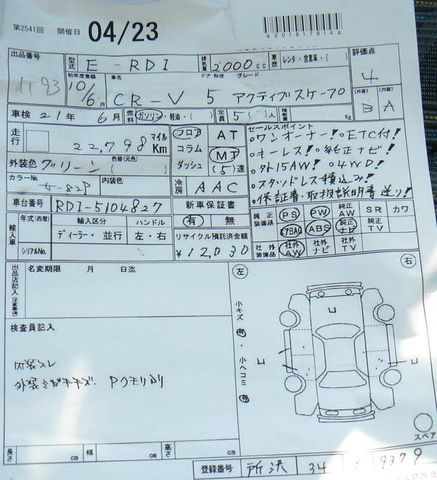 第2541回 開催日 04/23
82018178148
出品番号 1193
型式 E-RD1 排気量 2000cc 車歴 レンタ・営業車( ) 評価点 4
初年度登録 10/6月 車名 CR-V ドア 形状 グレード 5 アクティブスケープ0
(外装) B (内装) A
車検 21年 6月 燃料 ガソリン・軽油・( )
走行 22,798 マイル Km
フロア コラム ダッシュ AT MT (5)速
セールスポイント
ワンオーナー! ETC付!
キーレス! 純正ナビ!
外15AW! 4WD!
スタッドレス積込み!
保証書、取扱説明書 送り!
外装色 グリーン 色替(元色)
カラーNo. 内装色
冷房 AAC
車台番号 RD1-5104827 新車保証書 有 無
純正装備品 PS PW 純正AW SR カワ
エアB ABS 純正ナビ 純正TV
社外 AW 社外ナビ 社外TV
輸入車 年式(西暦) 輸入区分 ハンドル
ディーラー・並行 左・右
シリアルNo.
リサイクル預託済金額
¥12,030
出品店記入 名変期限 月 日迄
検査員記入
内装スレ
Pクモリ有り
左 右
小キズ 小ヘコミ
U
U
U
スペア
長さ cm 幅 cm 高さ cm
登録番号 所沢 34 9379